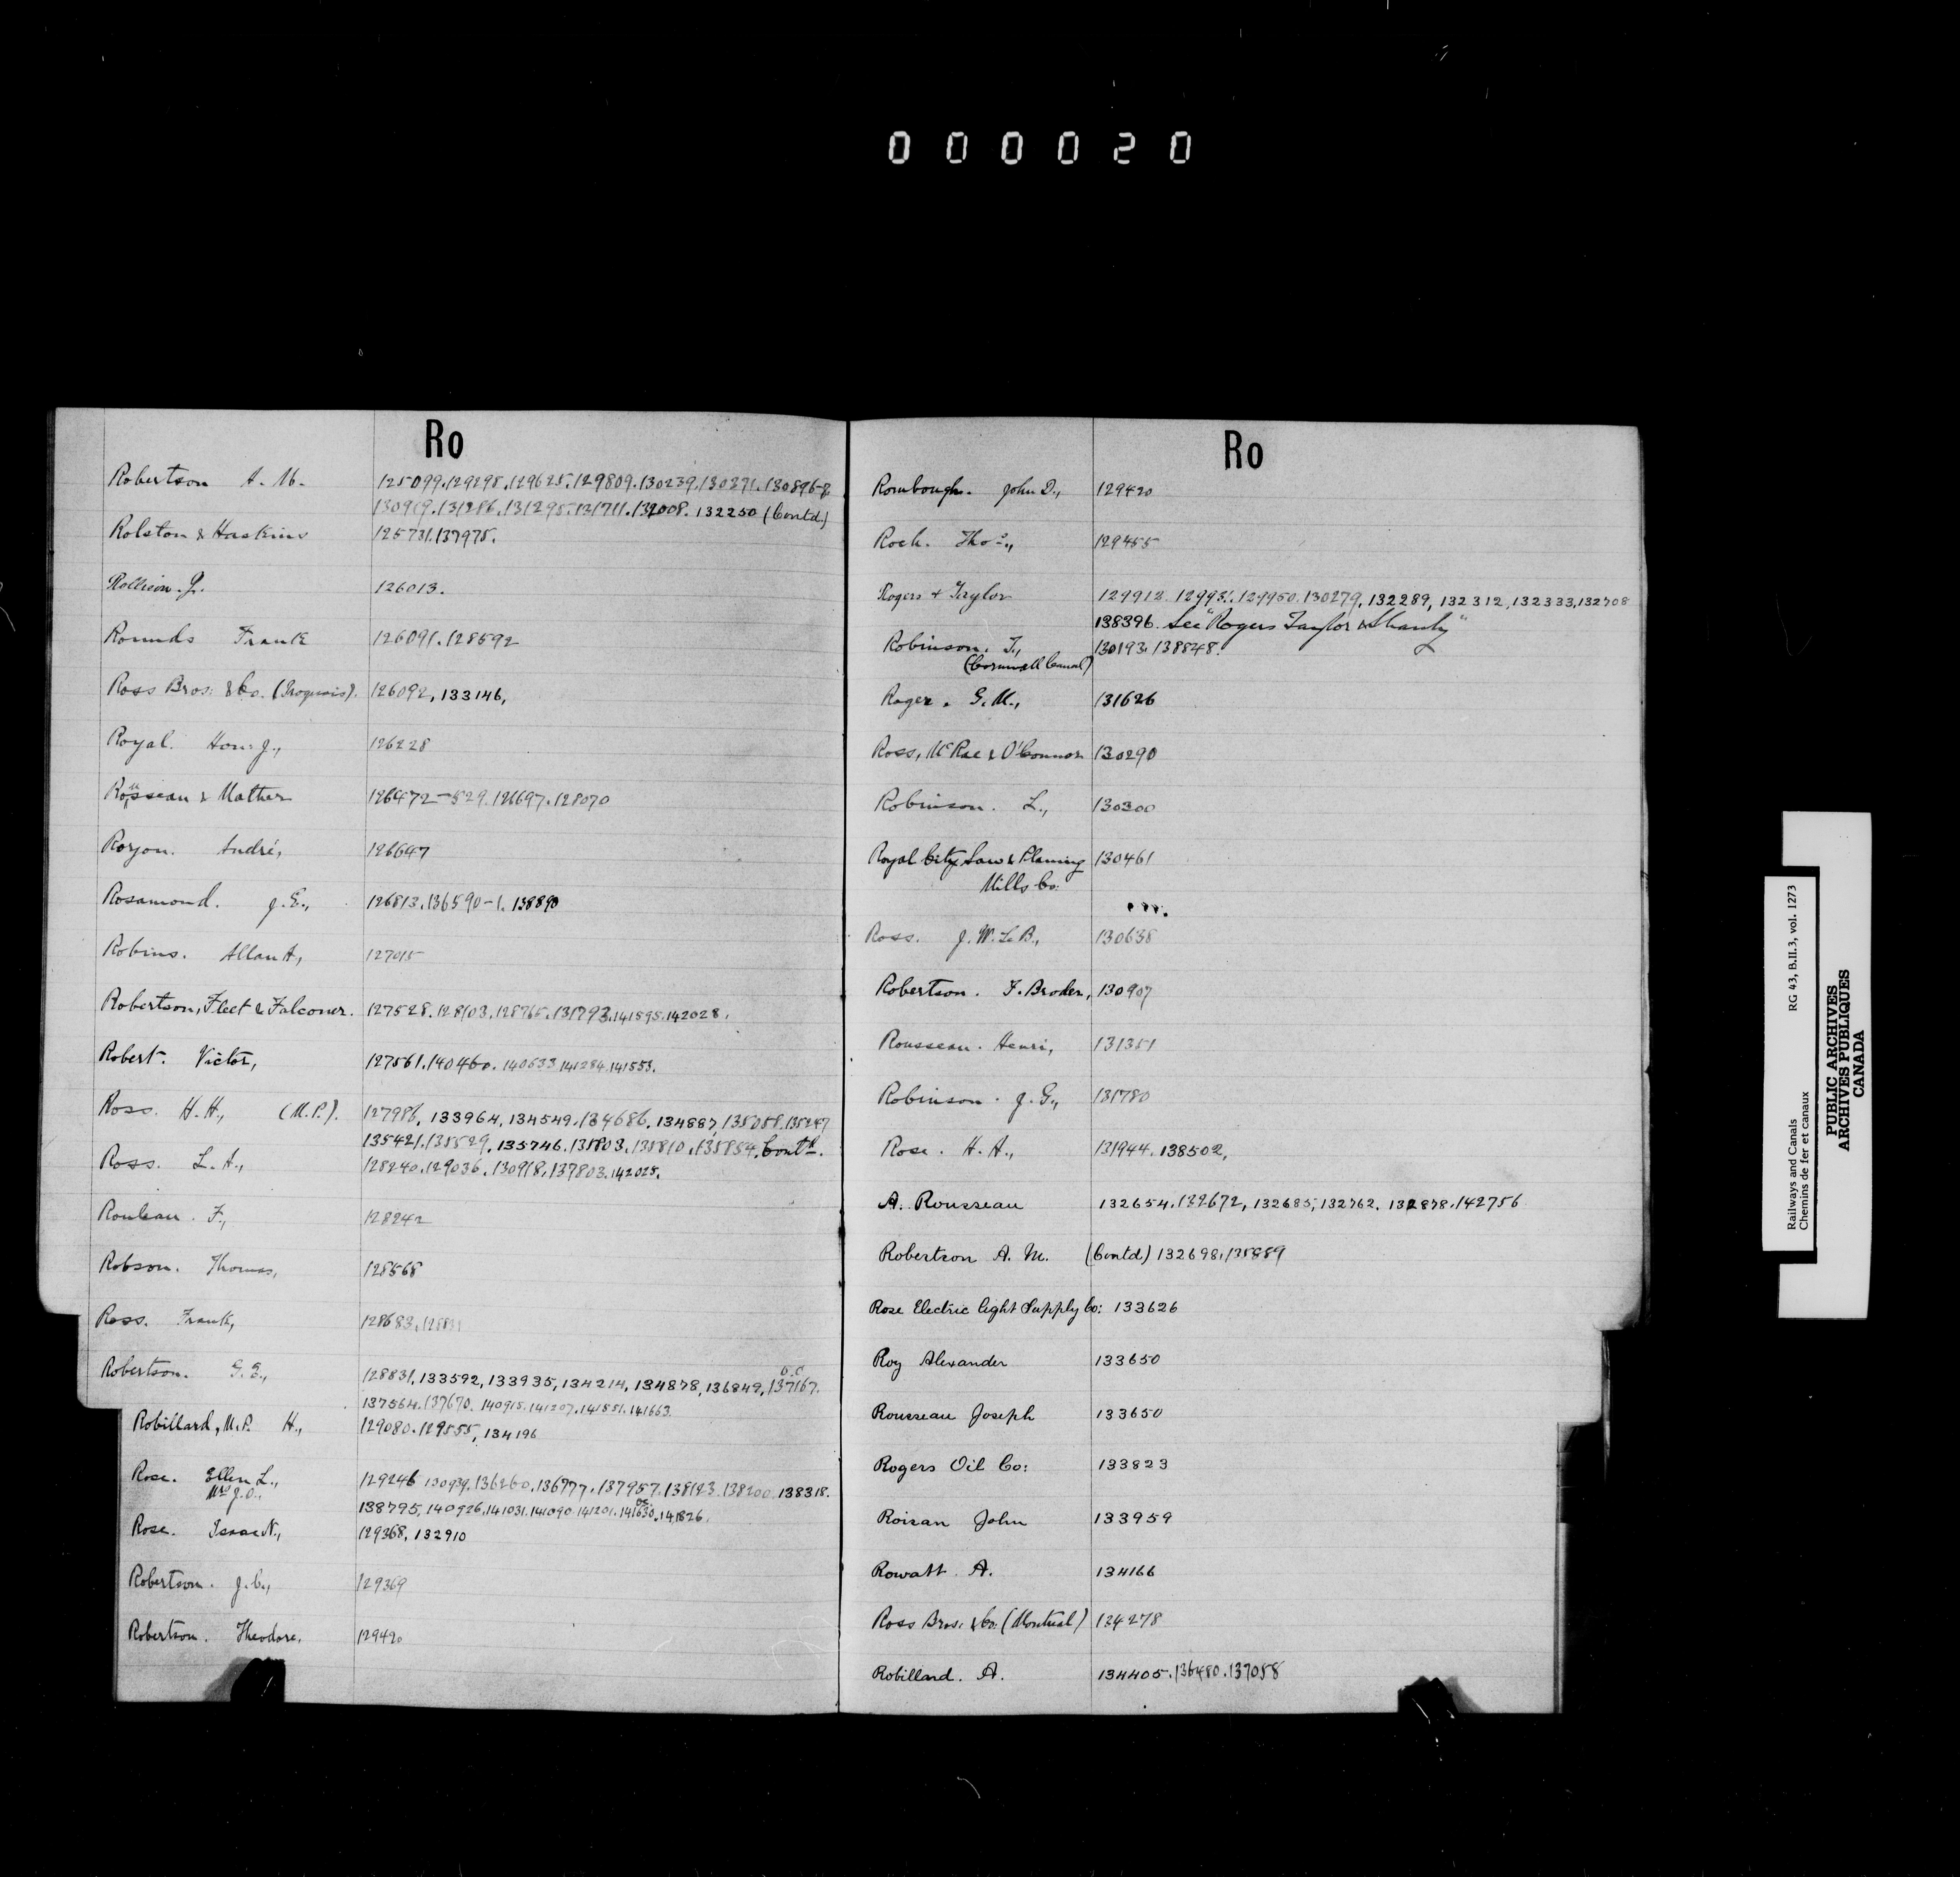 000020
Ro
Robertson A. M. 125099.129298.129625.129809.130239.130271.130896-8
130919.131286.131295.131711.132008.132250 (Contd.)
Rolston & Haskins 125731.137975.
Rollison. J. 126013.
Rounds Frank 126091.128592
Ross Bros: & Co. (Iroquois). 126092, 133146,
Royal. Hon. J., 126228
Rousseau & Mather 126472-529.126697.128070
Roryon. André, 126647
Rosamond. J. E., 126813.136590-1.138890
Robins. Allan A, 127015
Robertson, Fleet & Falconer. 127528.128103.128765.131793.141595.142028.
Robert. Victor, 127561.140460.140633.141284.141553.
Ross. H. H., (M.P.). 127986, 133964, 134549.134686, 134887, 135058.135247
135421.135529, 135746.135803.135810.135854. Contd.
Ross. L. A., 128240.129036.130918.137803.142025.
Rouleau. F., 128242
Robson. Thomas, 128568
Ross. Frank, 128683.128831
Robertson. G. E., 128831, 133592, 133935, 134214, 134878, 136849, 137167.
137564.137670.140915.141207.141851.141663.
Robillard, M.P. H., 129080.129555, 134196
Rose. Ellen L., 129246 130939.136260.136777.137957.138123.138200.138318.
Mrs J. O., 138795, 140926.141031.141090.141201.141630.141826.
Rose. Isaac N., 129368, 132910
Robertson. J. C., 129369
Robertson. Theodore, 129420
Ro
Rombough. John D., 129420
Roch. Thos., 129455
Rogers + Taylor 129912. 12993. 129950.130279, 132289, 132312, 132333, 132708
138396. See "Rogers Taylor & Shanly"
Robinson. T., 130193.138548.
(Cornwall Canal)
Roger. G. M., 131626
Ross, McRae & O'Connor 130290
Robinson. L., 130300
Royal City Saw & Planing 130461
Mills Co:
Ross. J. W. Le B., 130638
Robertson. F. Broder, 130907
Rousseau. Henri, 131351
Robinson. J. G., 131780
Rose. H. A., 131944. 138502,
A. Rousseau 132654.132672, 132685, 132762. 132878.142756
Robertson A. M. (Contd) 132698.135889
Rose Electric Light Supply Co: 133626
Roy Alexander 133650
Rousseau Joseph 133650
Rogers Oil Co: 133823
Roisan John 133959
Rowatt. A. 134166
Ross Bros. & Co: (Montreal) 134278
Robillard. A. 134405.136480.137058
Railways and Canals RG 43, B.II.3, vol. 1273
Chemins de fer et canaux
PUBLIC ARCHIVES
ARCHIVES PUBLIQUES
CANADA